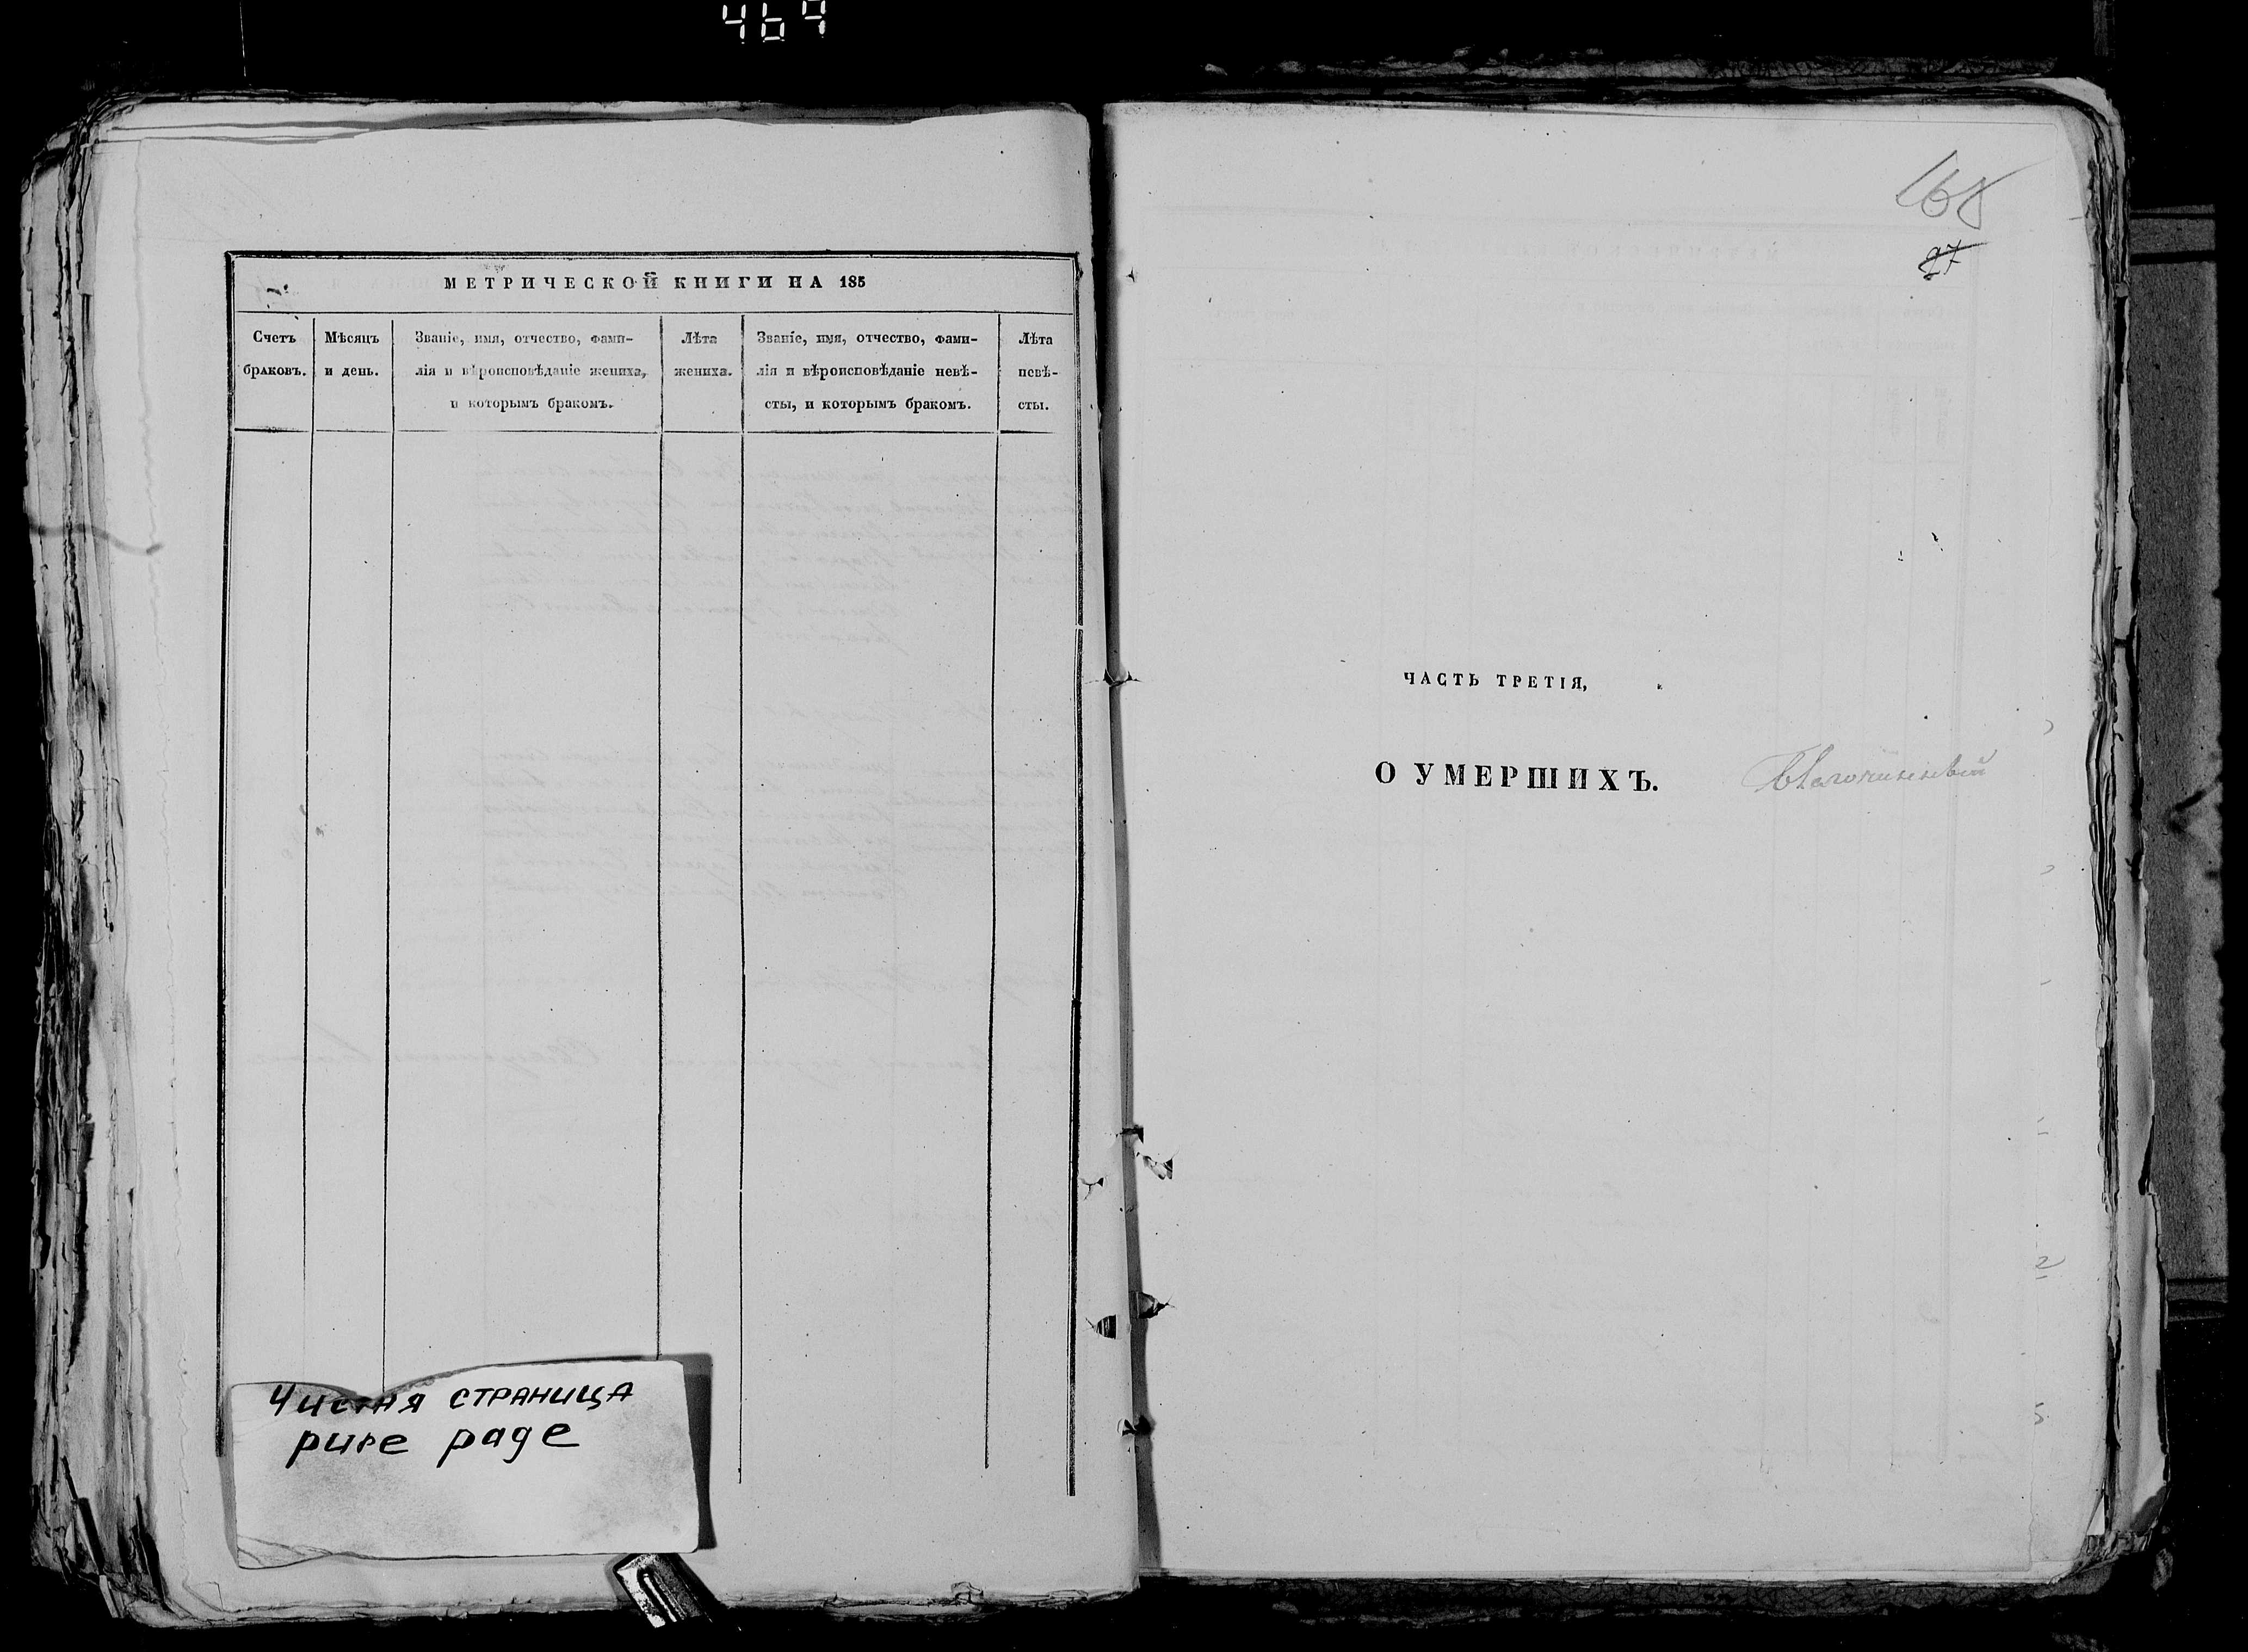 МЕТРИЧЕСКОЙ КНИГИ НА 185
Счетъ браковъ.
Мѣсяцъ и день.
Званіе, имя, отчество, фами-
лія и вѣроисповѣданіе жениха,
и которымъ бракомъ.
Лѣта
жениха.
Званіе, имя, отчество, фами-
лія и вѣроисповѣданіе невѣ-
сты, и которымъ бракомъ.
Лѣта
невѣ-
сты.
Чистая страница
pure page
168
27
ЧАСТЬ ТРЕТІЯ,
О УМЕРШИХЪ.